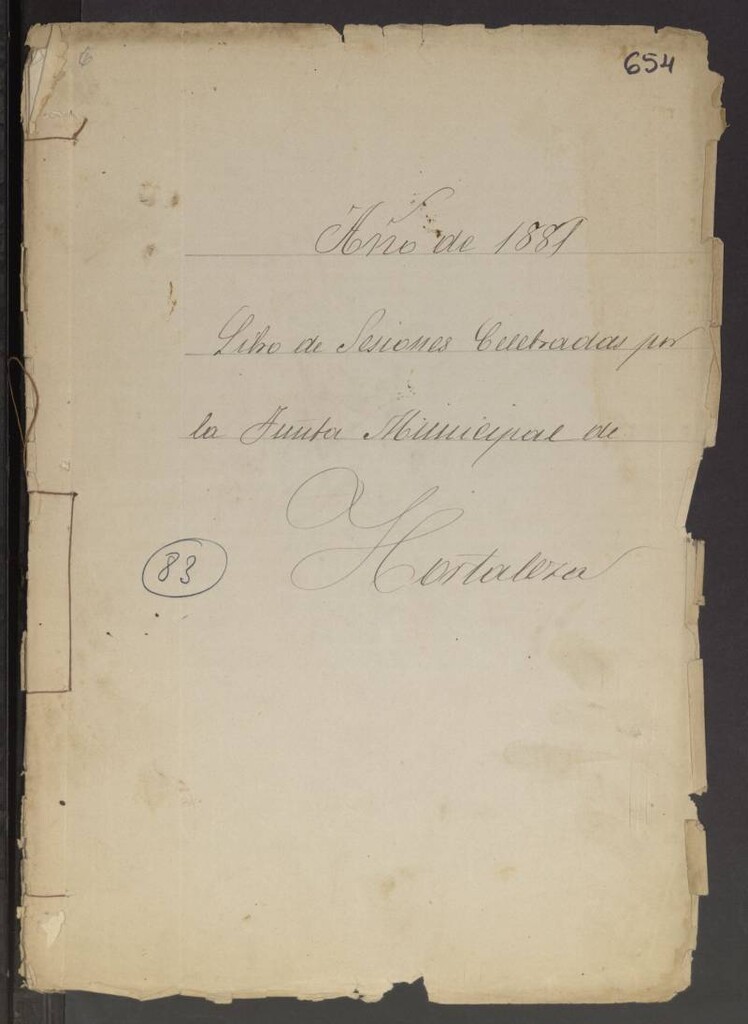 6
654
Año de 1881
Libro de Sesiones Celebradas por
la Junta Municipal de
Hortaleza
83